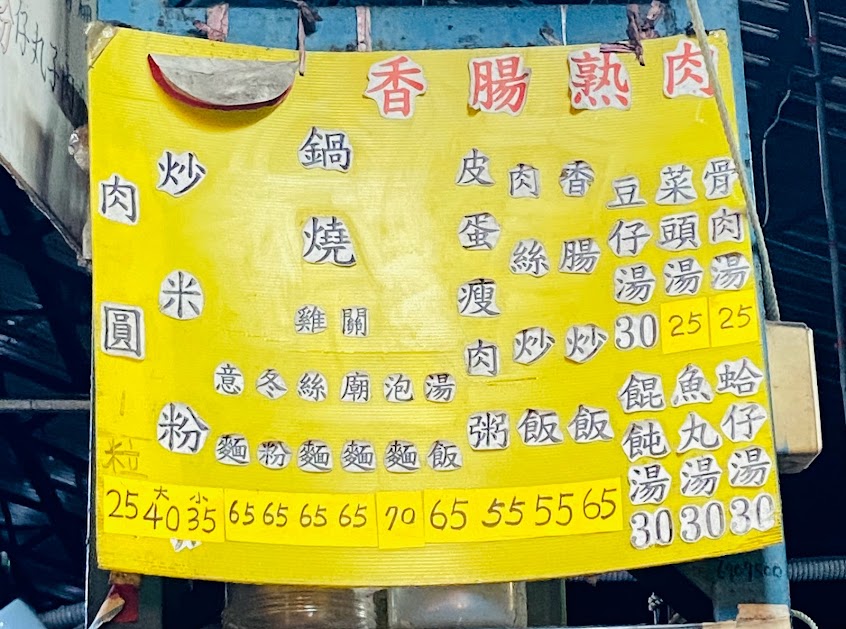 香腸熟肉
肉圓
1粒
25
炒米粉
大40
小35
鍋燒
意麵
65
冬粉
65
雞絲麵
65
關廟麵
65
泡麵
70
湯飯
65
皮蛋瘦肉粥
55
肉絲炒飯
55
香腸炒飯
65
豆仔湯
30
菜頭湯
25
骨肉湯
25
餛飩湯
30
魚丸湯
30
蛤仔湯
30
仔丸子